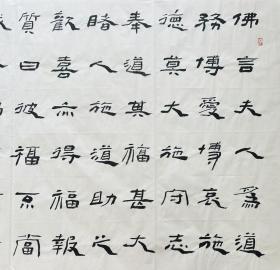 佛言夫人為道
務博愛博哀施
德莫大施守志
奉道其福甚大
睹人施道助之
歡喜亦得福報
質曰彼福不當